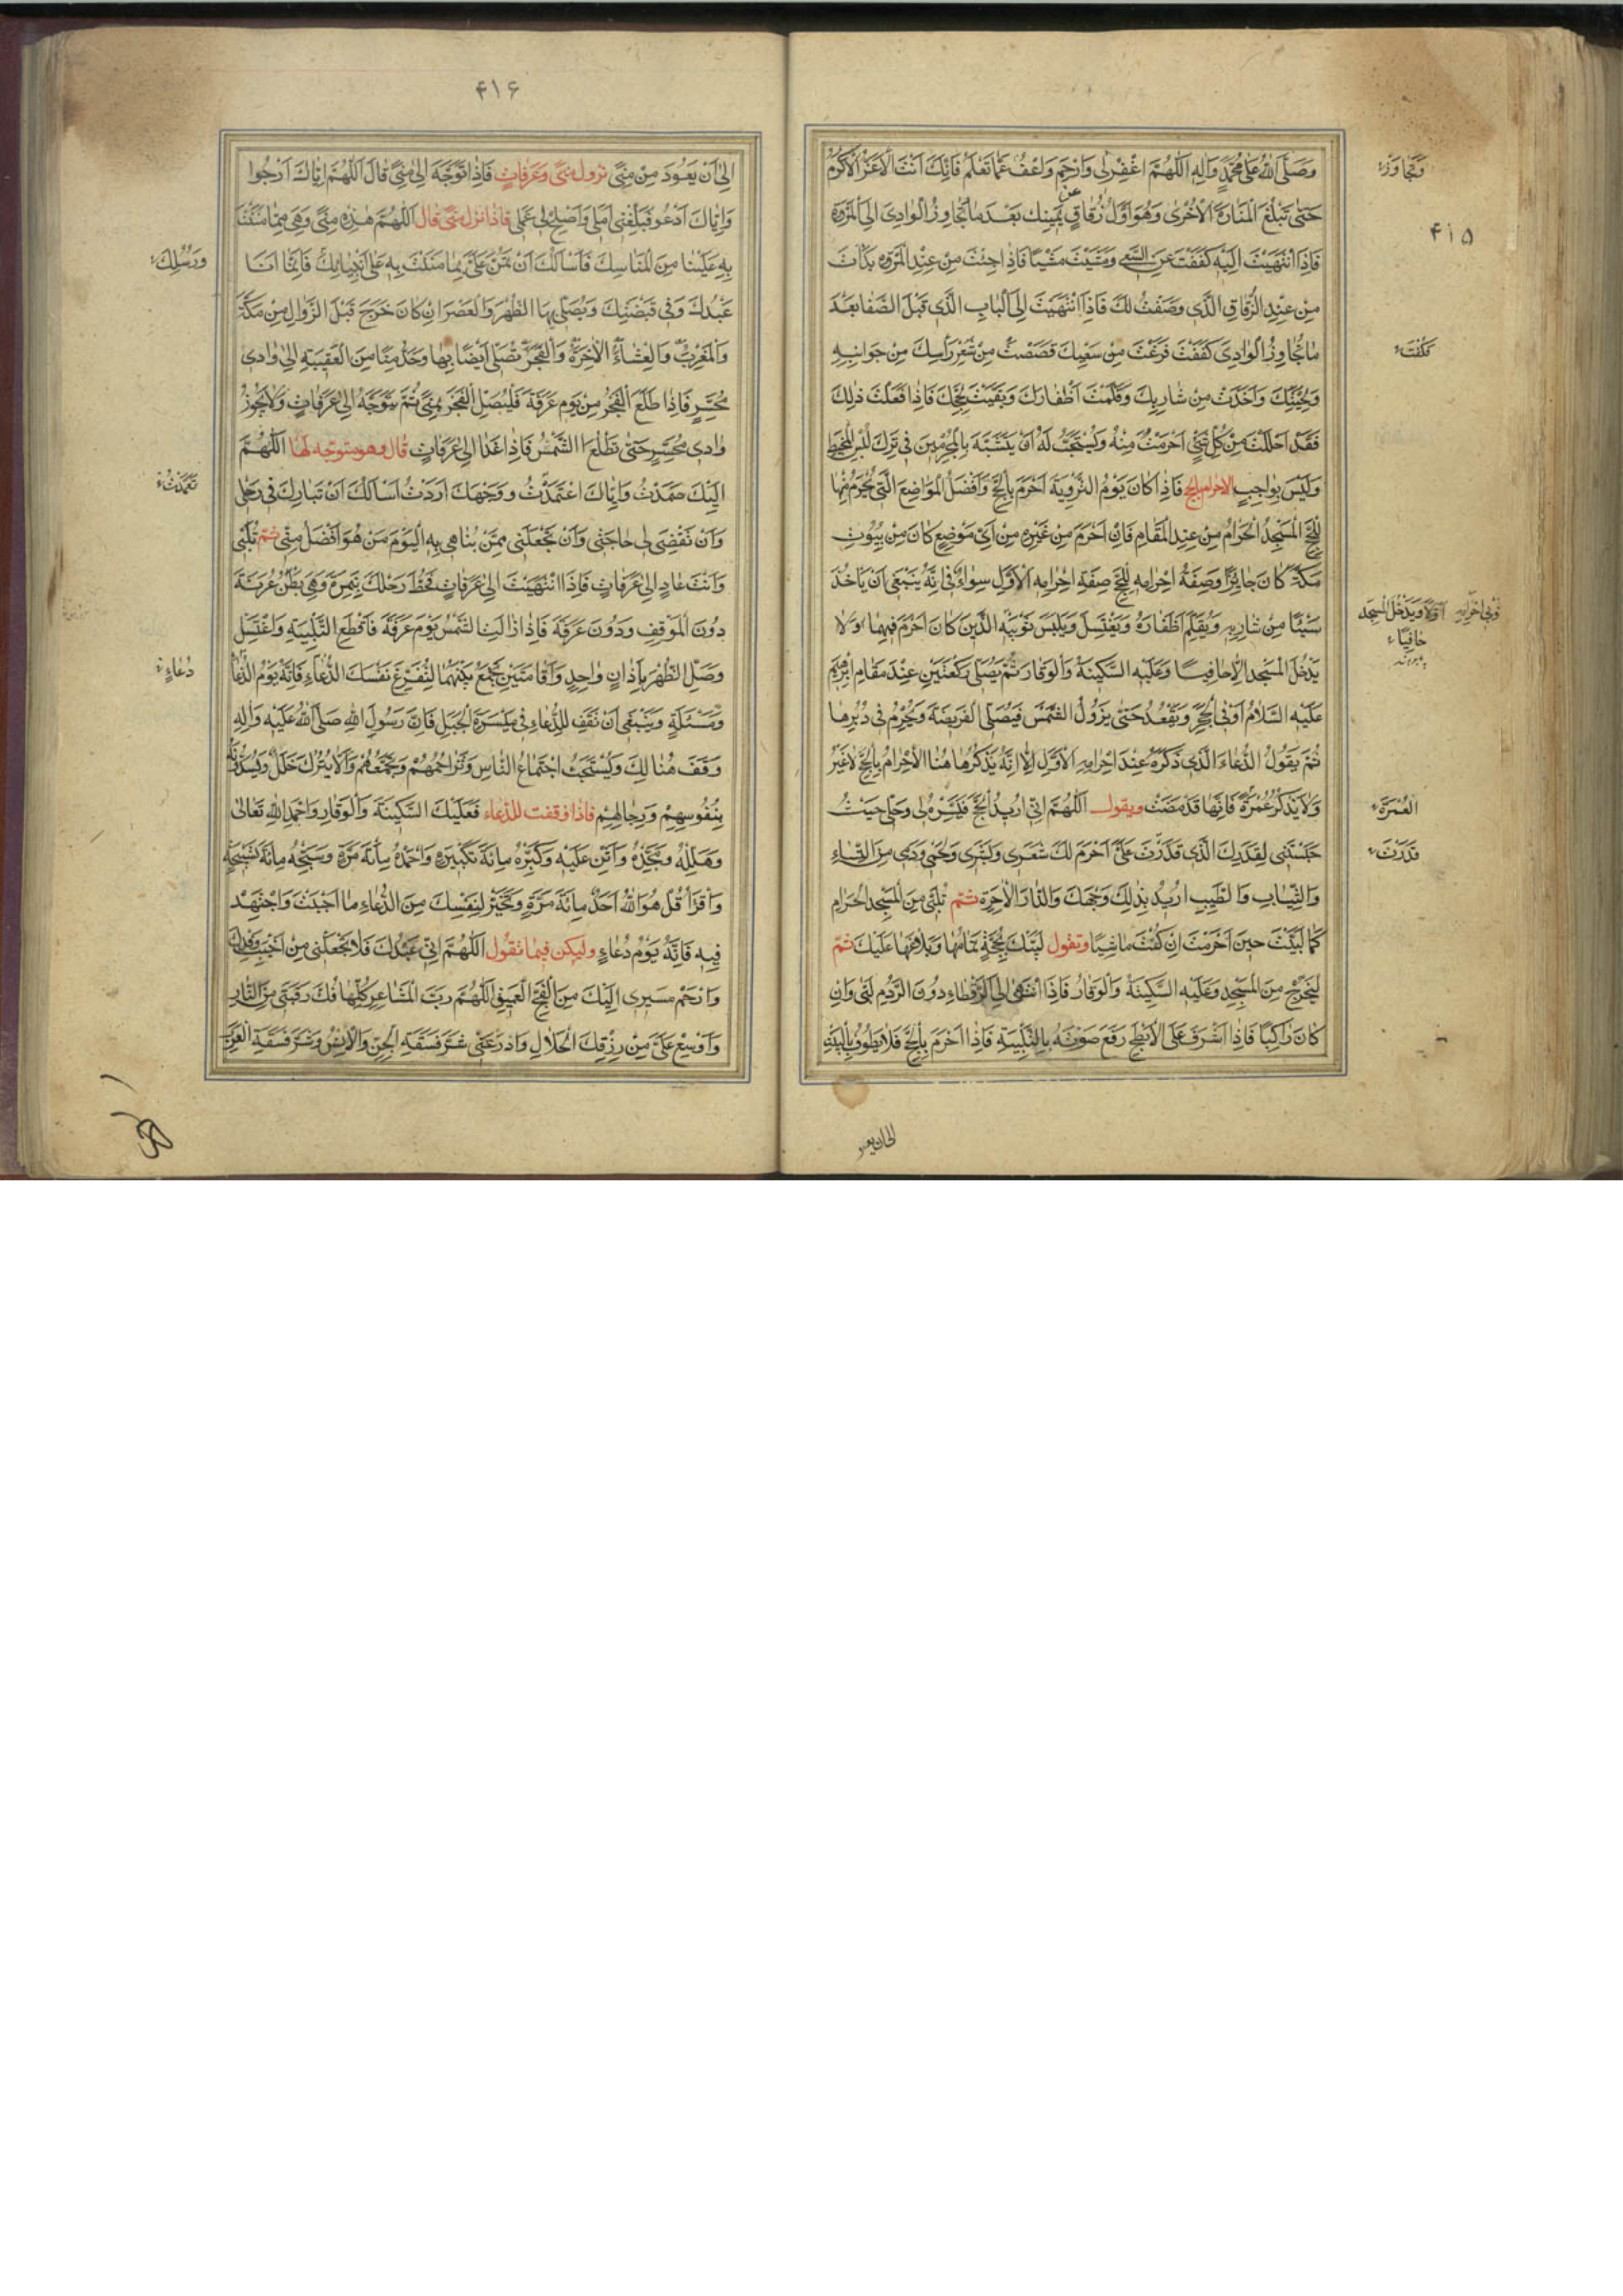 وَصَلَّى اللهُ عَلى مُحَمَّدٍ وَالِهِ اَللّهُمَّ اغْفِرْلى وَارْحَمْ وَاعْفُ عَمّا تَعْلَمُ فَاِنَّكَ اَنْتَ الْاَعَزُّ الْاَكْرَمُ
وَتَجاوَزْ
حَتّى تَبْلُغَ الْمَنارَةَ الْاُخْرى وَهُوَ اَوَّلُ زُقاقٍ عَنْ يَمينِكَ بَعْدَ ما تُجاوِزُ الْوادِىَ اِلَى الْمَرْوَةِ
۴۱۵
فَاِذَا انْتَهَيْتَ اِلَيْهِ كَفَفْتَ عَنِ السَّعْىِ وَمَشَيْتَ مَشْيًا فَاِذا جِئْتَ مِنْ عِنْدِ الْمَرْوَةِ بَدَأْتَ
مِنْ عِنْدِ الزُّقاقِ الَّذى وَصَفْتُ لَكَ فَاِذَا انْتَهَيْتَ اِلَى الْبابِ الَّذى قَبْلَ الصَّفا بَعْدَ
ما تُجاوِزُ الْوادِىَ كَفَفْتَ فَرَغْتَ مِنْ سَعْيِكَ قَصَصْتَ مِنْ شَعْرِ رَأْسِكَ مِنْ جَوانِبِهِ
وَلِحْيَتِكَ وَاَخَذْتَ مِنْ شارِبِكَ وَقَلَّمْتَ اَظْفارَكَ وَبَقَّيْتَ لِحَجِّكَ فَاِذا فَعَلْتَ ذلِكَ
فَقَدْ اَحْلَلْتَ مِنْ كُلِّ شَىْءٍ اَحْرَمْتَ مِنْهُ وَيُسْتَحَبُّ لَهُ اَنْ يَتَشَبَّهَ بِالْمُحْرِمينَ فى تَرْكِ لُبْسِ الْمَخيطِ
وَلَيْسَ بِواجِبٍ الاحرام بالحج فَاِذا كانَ يَوْمُ التَّرْوِيَةِ اَحْرَمَ بِالْحَجِّ وَاَفْضَلُ الْمَواضِعِ الَّتى يُحْرَمُ مِنْها
لِلْحَجِّ الْمَسْجِدُ الْحَرامُ مِنْ عِنْدِ الْمَقامِ فَاِنْ اَحْرَمَ مِنْ غَيْرِهِ مِنْ اَىِّ مَوْضِعٍ كانَ مِنْ بُيُوتِ
مَكَّةَ كانَ جائِزًا وَصِفَةُ اِحْرامِهِ لِلْحَجِّ صِفَةُ اِحْرامِهِ الْاَوَّلِ سِواءٌ فى اَنَّهُ يَنْبَغى اَنْ يَاْخُذَ
شَيْئًا مِنْ شارِبِهِ وَيُقَلِّمَ اَظْفارَهُ وَيَغْتَسِلَ وَيَلْبَسَ ثَوْبَيْهِ الَّذَيْنِ كانَ اَحْرَمَ فيهِما وَلا
ثَوْبَى اِحْرامِهِ اَوَّلًا وَيَدْخُلَ الْمَسْجِدَ حافِيًا
يَدْخُلَ الْمَسْجِدَ اِلّا حافِيًا وَعَلَيْهِ السَّكينَةُ وَالْوَقارُ ثُمَّ يُصَلّى رَكْعَتَيْنِ عِنْدَ مَقامِ اِبْرهيمَ
عَلَيْهِ السَّلامُ اَوْ فِى الْحِجْرِ وَيَقْعُدُ حَتّى يَزُولَ الشَّمْسُ فَيُصَلِّى الْفَريضَةَ وَيُحْرِمُ فى دُبُرِها
ثُمَّ يَقُولُ الدُّعاءَ الَّذى ذَكَرَهُ عِنْدَ اِحْرامِهِ الْاَوَّلِ اِلّا اَنَّهُ يَذْكُرُ هاهُنَا الْاِحْرامَ بِالْحَجِّ لا غَيْرُ
وَلا يَذْكُرُ عُمْرَةً فَاِنَّها قَدْ مَضَتْ ويقول اَللّهُمَّ اِنّى اُريدُ الْحَجَّ فَيَسِّرْهُ لى وَحُلَّنى حَيْثُ
الْعُمْرَةَ
حَبَسْتَنى لِقَدَرِكَ الَّذى قَدَّرْتَ عَلَىَّ اَحْرَمَ لَكَ شَعَرى وَبَشَرى وَلَحْمى وَدَمى مِنَ النِّساءِ
قَدَّرْتَ
وَالثِّيابِ وَالطّيبِ اُريدُ بِذلِكَ وَجْهَكَ وَالدّارَ الْاخِرَةَ ثمّ تُلَبّى مِنَ الْمَسْجِدِ الْحَرامِ
كَما لَبَّيْتَ حينَ اَحْرَمْتَ اِنْ كُنْتَ ماشِيًا وتقول لَبَّيْكَ بِحَجَّةٍ تَمامُها وَبَلاغُها عَلَيْكَ ثمّ
لِيَخْرُجْ مِنَ الْمَسْجِدِ وَعَلَيْهِ السَّكينَةُ وَالْوَقارُ فَاِذَا انْتَهى اِلَى الرَّقْطاءِ دُونَ الرَّدْمِ لَبّى وَاِنْ
كانَ راكِبًا فَاِذا اَشْرَفَ عَلَى الْاَبْطَحِ رَفَعَ صَوْتَهُ بِالتَّلْبِيَةِ فَاِذا اَحْرَمَ بِالْحَجِّ فَلا يَطُوفُ بِالْبَيْتِ
۴۱۶
اِلى اَنْ يَعُودَ مِنْ مِنًى نزول منى وعرفات فَاِذا تَوَجَّهَ اِلى مِنًى قالَ اَللّهُمَّ اِيّاكَ اَرْجُوا
وَاِيّاكَ اَدْعُو فَبَلِّغْنى اَمَلى وَاَصْلِحْ لى عَمَلى فاذا نزل منى قال اَللّهُمَّ هذِهِ مِنًى وَهِىَ مِمّا مَنَنْتَ
بِهِ عَلَيْنا مِنَ الْمَناسِكِ فَاَسْاَلُكَ اَنْ تَمُنَّ عَلَىَّ بِما مَنَنْتَ بِهِ عَلى اَنْبِيائِكَ فَاِنَّما اَنَا
وَرُسُلِكَ
عَبْدُكَ وَفى قَبْضَتِكَ وَيُصَلّى بِهَا الظُّهْرَ وَالْعَصْرَ اِنْ كانَ خَرَجَ قَبْلَ الزَّوالِ مِنْ مَكَّةَ
وَالْمَغْرِبَ وَالْعِشاءَ الْاخِرَةَ وَالْفَجْرَ يُصَلّى اَيْضًا بِها وَحَدُّ مِنًا مِنَ الْعَقَبَةِ اِلى وادى
مُحَسِّرٍ فَاِذا طَلَعَ الْفَجْرُ مِنْ يَوْمِ عَرَفَةَ فَلْيُصَلِّ الْفَجْرَ بِمِنًى ثُمَّ يَتَوَجَّهُ اِلى عَرَفاتٍ وَلا يَجُوزُ
وادى مُحَسِّرٍ حَتّى تَطْلُعَ الشَّمْسُ فَاِذا غَدا اِلى عَرَفاتٍ قال وهو متوجّه لها اَللّهُمَّ
اِلَيْكَ صَمَدْتُ وَاِيّاكَ اعْتَمَدْتُ وَوَجْهَكَ اَرَدْتُ اَسْاَلُكَ اَنْ تُبارِكَ فى رَحْلى
تَعَمَّدْتُ
وَاَنْ تَقْضِىَ لى حاجَتى وَاَنْ تَجْعَلَنى مِمَّنْ تُباهى بِهِ الْيَوْمَ مَنْ هُوَ اَفْضَلُ مِنّى ثمّ تُلَبّى
وَاَنْتَ غادٍ اِلى عَرَفاتٍ فَاِذَا انْتَهَيْتَ اِلى عَرَفاتٍ فَحُطَّ رَحْلَكَ بِنَمِرَةَ وَهِىَ بَطْنُ عُرَنَةَ
دُونَ الْمَوْقِفِ وَدُونَ عَرَفَةَ فَاِذا زالَتِ الشَّمْسُ يَوْمَ عَرَفَةَ فَاقْطَعِ التَّلْبِيَةَ وَاغْتَسِلْ
وَصَلِّ الظُّهْرَ بِاَذانٍ واحِدٍ وَاِقامَتَيْنِ تَجْمَعُ بَيْنَهُما لِتُفَرِّغَ نَفْسَكَ الدُّعاءِ فَاِنَّهُ يَوْمُ الدُّعاءِ
دُعاءٍ
وَمَسْئَلَةٍ وَيَنْبَغى اَنْ تَقِفَ لِلدُّعاءِ فى مَيْسَرَةِ الْجَبَلِ فَاِنَّ رَسُولَ اللهِ صَلَّى اللهُ عَلَيْهِ وَالِهِ
وَقَفَ هُنالِكَ وَيُسْتَحَبُّ اجْتِماعُ النّاسِ وَتَزاحُمُهُمْ وَتَجَمُّعُهُمْ وَاَلّا يُتْرَكَ خَلَلٌ وَيَسُدُّونَهُ
بِنُفُوسِهِمْ وَرِحالِهِمْ فاذا وقفت للدّعاء فَعَلَيْكَ السَّكينَةَ وَالْوَقارَ وَاحْمَدِ اللهَ تَعالى
وَهَلِّلْهُ وَمَجِّدْهُ وَاَثْنِ عَلَيْهِ وَكَبِّرْهُ مِائَةَ تَكْبيرَةٍ وَاحْمَدْهُ مِائَةَ مَرَّةٍ وَسَبِّحْهُ مِائَةَ تَسْبيحَةٍ
وَاقْرَأْ قُلْ هُوَ اللهُ اَحَدٌ مِائَةَ مَرَّةٍ وَتَخَيَّرْ لِنَفْسِكَ مِنَ الدُّعاءِ ما اَحْبَبْتَ وَاجْتَهِدْ
فيهِ فَاِنَّهُ يَوْمُ دُعاءٍ وليكن فيما تقول اَللّهُمَّ اِنّى عَبْدُكَ فَلا تَجْعَلْنى مِنْ اَخْيَبِ وَفْدِكَ
وَارْحَمْ مَسيرى اِلَيْكَ مِنَ الْفَجِّ الْعَميقِ اَللّهُمَّ رَبَّ الْمَشاعِرِ كُلِّها فُكَّ رَقَبَتى مِنَ النّارِ
وَاَوْسِعْ عَلَىَّ مِنْ رِزْقِكَ الْحَلالِ وَادْرَءْ عَنّى شَرَّ فَسَقَةِ الْجِنِّ وَالْاِنْسِ وَشَرَّ فَسَقَةِ الْعَرَبِ